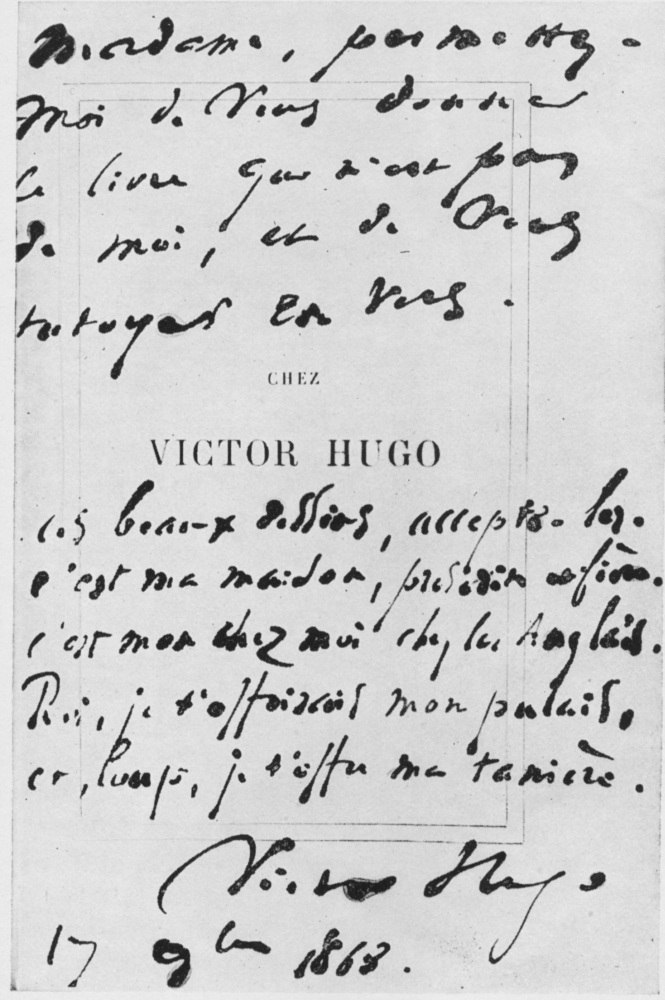 Madame, permettez-
moi de Vous donner
ce livre qui n'est pas
de moi, et de Vous
tutoyer en Vers.
CHEZ
VICTOR HUGO
ces beaux dessins, accepte-les.
c'est ma maison, et fière.
c'est mon chez moi chez les Anglais.
Roi, je t'offrirais mon palais,
et, loup, je t'offre ma tanière.
Victor Hugo
17 9bre 1868.